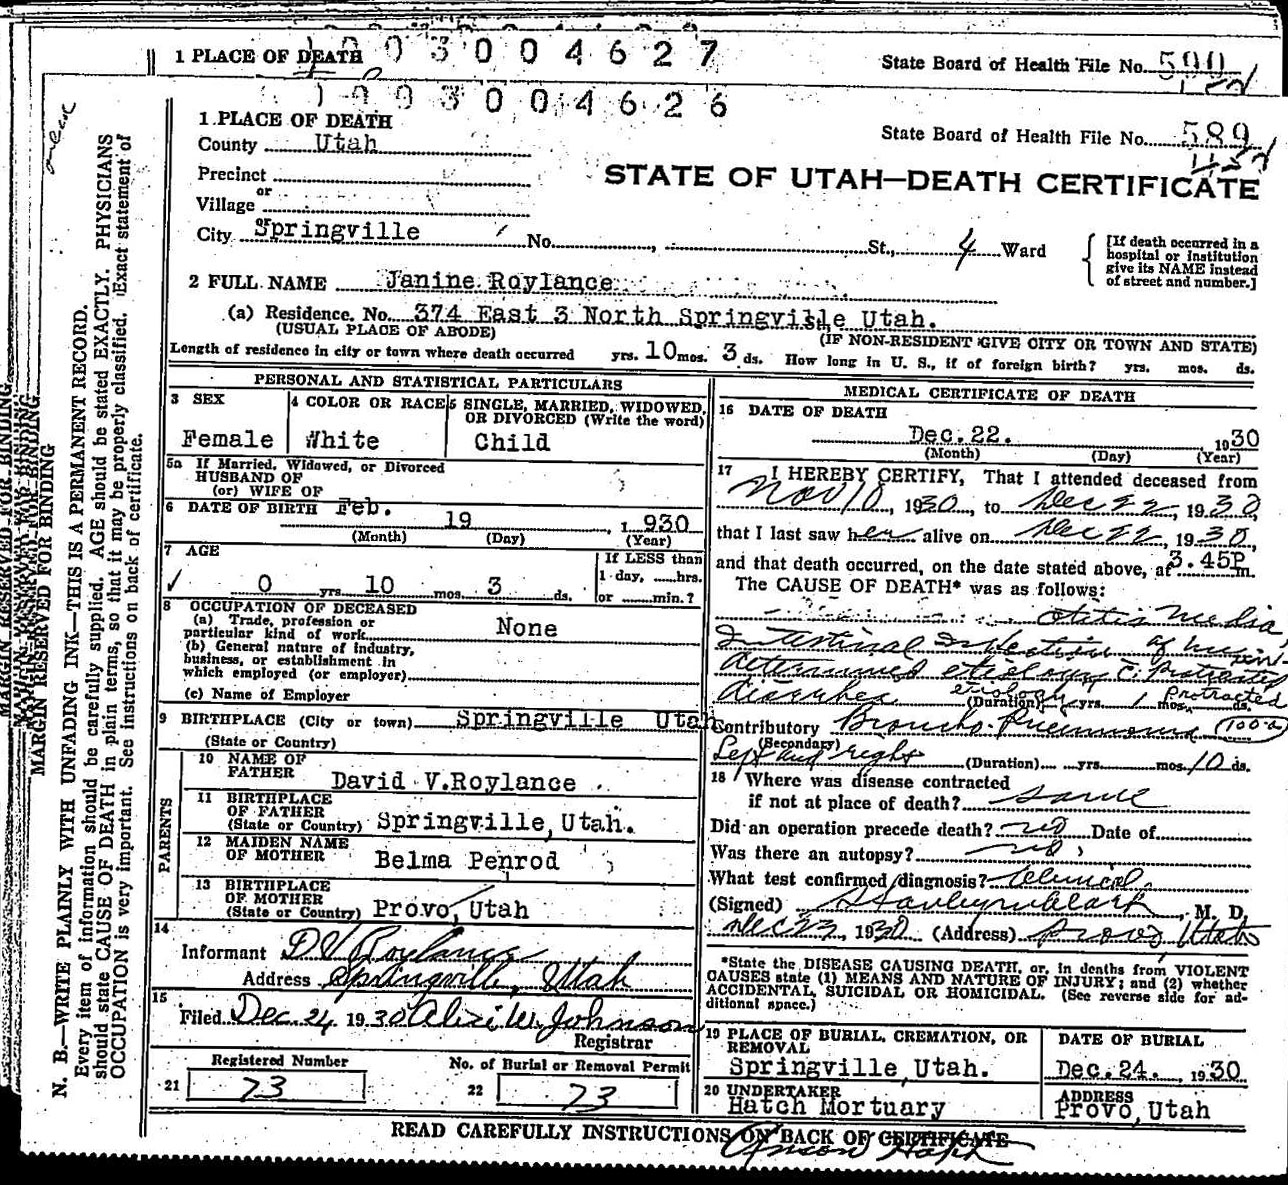 1 PLACE OF DEATH 003004627 State Board of Health File No. 590
003004626
1 PLACE OF DEATH
State Board of Health File No. 589
County Utah
STATE OF UTAH—DEATH CERTIFICATE
Precinct
or
Village
or
City Springville No. St., 4 Ward
[If death occurred in a
hospital or institution
give its NAME instead
of street and number.]
2 FULL NAME Janine Roylance
(a) Residence. No. 374 East 3 North Springville Utah.
(USUAL PLACE OF ABODE) (IF NON-RESIDENT GIVE CITY OR TOWN AND STATE)
Length of residence in city or town where death occurred yrs. 10 mos. 3 ds. How long in U. S., if of foreign birth? yrs. mos. ds.
PERSONAL AND STATISTICAL PARTICULARS
3 SEX
Female
4 COLOR OR RACE
White
5 SINGLE, MARRIED, WIDOWED,
OR DIVORCED (Write the word)
Child
5a If Married, Widowed, or Divorced
HUSBAND OF
(or) WIFE OF
6 DATE OF BIRTH Feb. 19, 1930
(Month) (Day) (Year)
7 AGE
0 yrs. 10 mos. 3 ds.
If LESS than
1 day, hrs.
or min.?
8 OCCUPATION OF DECEASED
(a) Trade, profession or
particular kind of work None
(b) General nature of industry,
business, or establishment in
which employed (or employer)
(c) Name of Employer
9 BIRTHPLACE (City or town) Springville Utah
(State or Country)
PARENTS
10 NAME OF
FATHER David V.Roylance
11 BIRTHPLACE
OF FATHER
(State or Country) Springville,Utah.
12 MAIDEN NAME
OF MOTHER Belma Penrod
13 BIRTHPLACE
OF MOTHER
(State or Country) Provo,Utah
14
Informant D V Roylance
Address Springville, Utah
15
Filed Dec 24 1930 W. Johnson
Registrar
Registered Number
21 73
No. of Burial or Removal Permit
22 73
MEDICAL CERTIFICATE OF DEATH
16 DATE OF DEATH
Dec.22. 1930
(Month) (Day) (Year)
17 I HEREBY CERTIFY, That I attended deceased from
Nov 10, 1930, to Dec 22, 1930,
that I last saw her alive on Dec 22, 1930,
and that death occurred, on the date stated above, at 3.45P m.
The CAUSE OF DEATH* was as follows:
Otitis Media
Intestinal Infection of un-
determined etiology c. Protracted
diarrhea etiology Protracted
(Duration) yrs. 1 mos. ds.
Contributory Broncho-Pneumonia 100-a
(Secondary)
Left and right (Duration) yrs. mos. 10 ds.
18 Where was disease contracted
if not at place of death? same
Did an operation precede death? no Date of
Was there an autopsy? no
What test confirmed diagnosis? Clinical
(Signed) Clark, M. D.
Dec 23, 1930 (Address) Provo, Utah
*State the DISEASE CAUSING DEATH, or, in deaths from VIOLENT
CAUSES state (1) MEANS AND NATURE OF INJURY; and (2) whether
ACCIDENTAL, SUICIDAL OR HOMICIDAL. (See reverse side for ad-
ditional space.)
19 PLACE OF BURIAL, CREMATION, OR
REMOVAL
Springville,Utah.
DATE OF BURIAL
Dec.24. 1930
20 UNDERTAKER
Hatch Mortuary
ADDRESS
Provo,Utah
READ CAREFULLY INSTRUCTIONS ON BACK OF CERTIFICATE
Anson Hatch
MARGIN RESERVED FOR BINDING
N. B.—WRITE PLAINLY WITH UNFADING INK—THIS IS A PERMANENT RECORD.
Every item of information should be carefully supplied. AGE should be stated EXACTLY. PHYSICIANS
should state CAUSE OF DEATH in plain terms, so that it may be properly classified. Exact statement of
OCCUPATION is very important. See instructions on back of certificate.